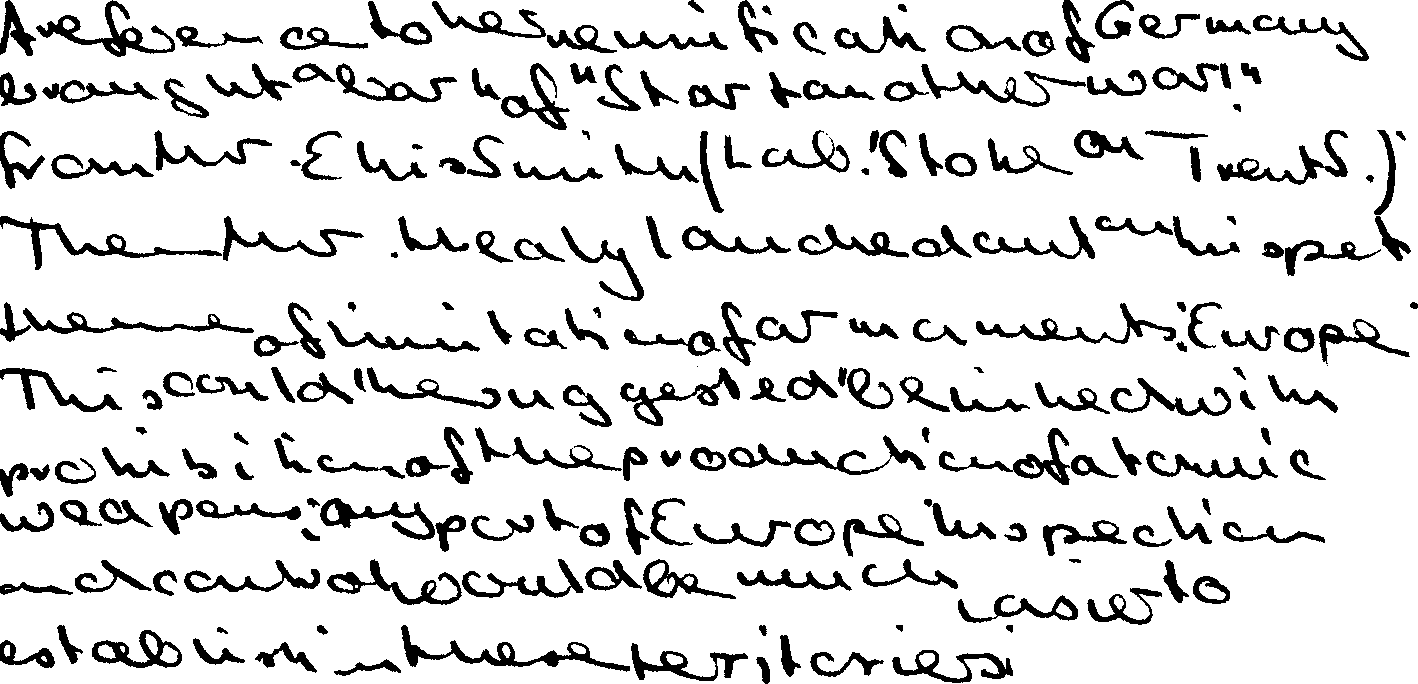 A reference to the reunification of Germany
brought a bark of "Start another war!"
from Mr. Ellis Smith (Lab. Stoke on Trent S.)
Then Mr. Healy launched out on his pet
theme of limitation of armaments in Europe
This could he suggested be linked with
prohibition of the production of atomic
weapons in any part of Europe Inspection
and control would be much easier to
establish in these territories.